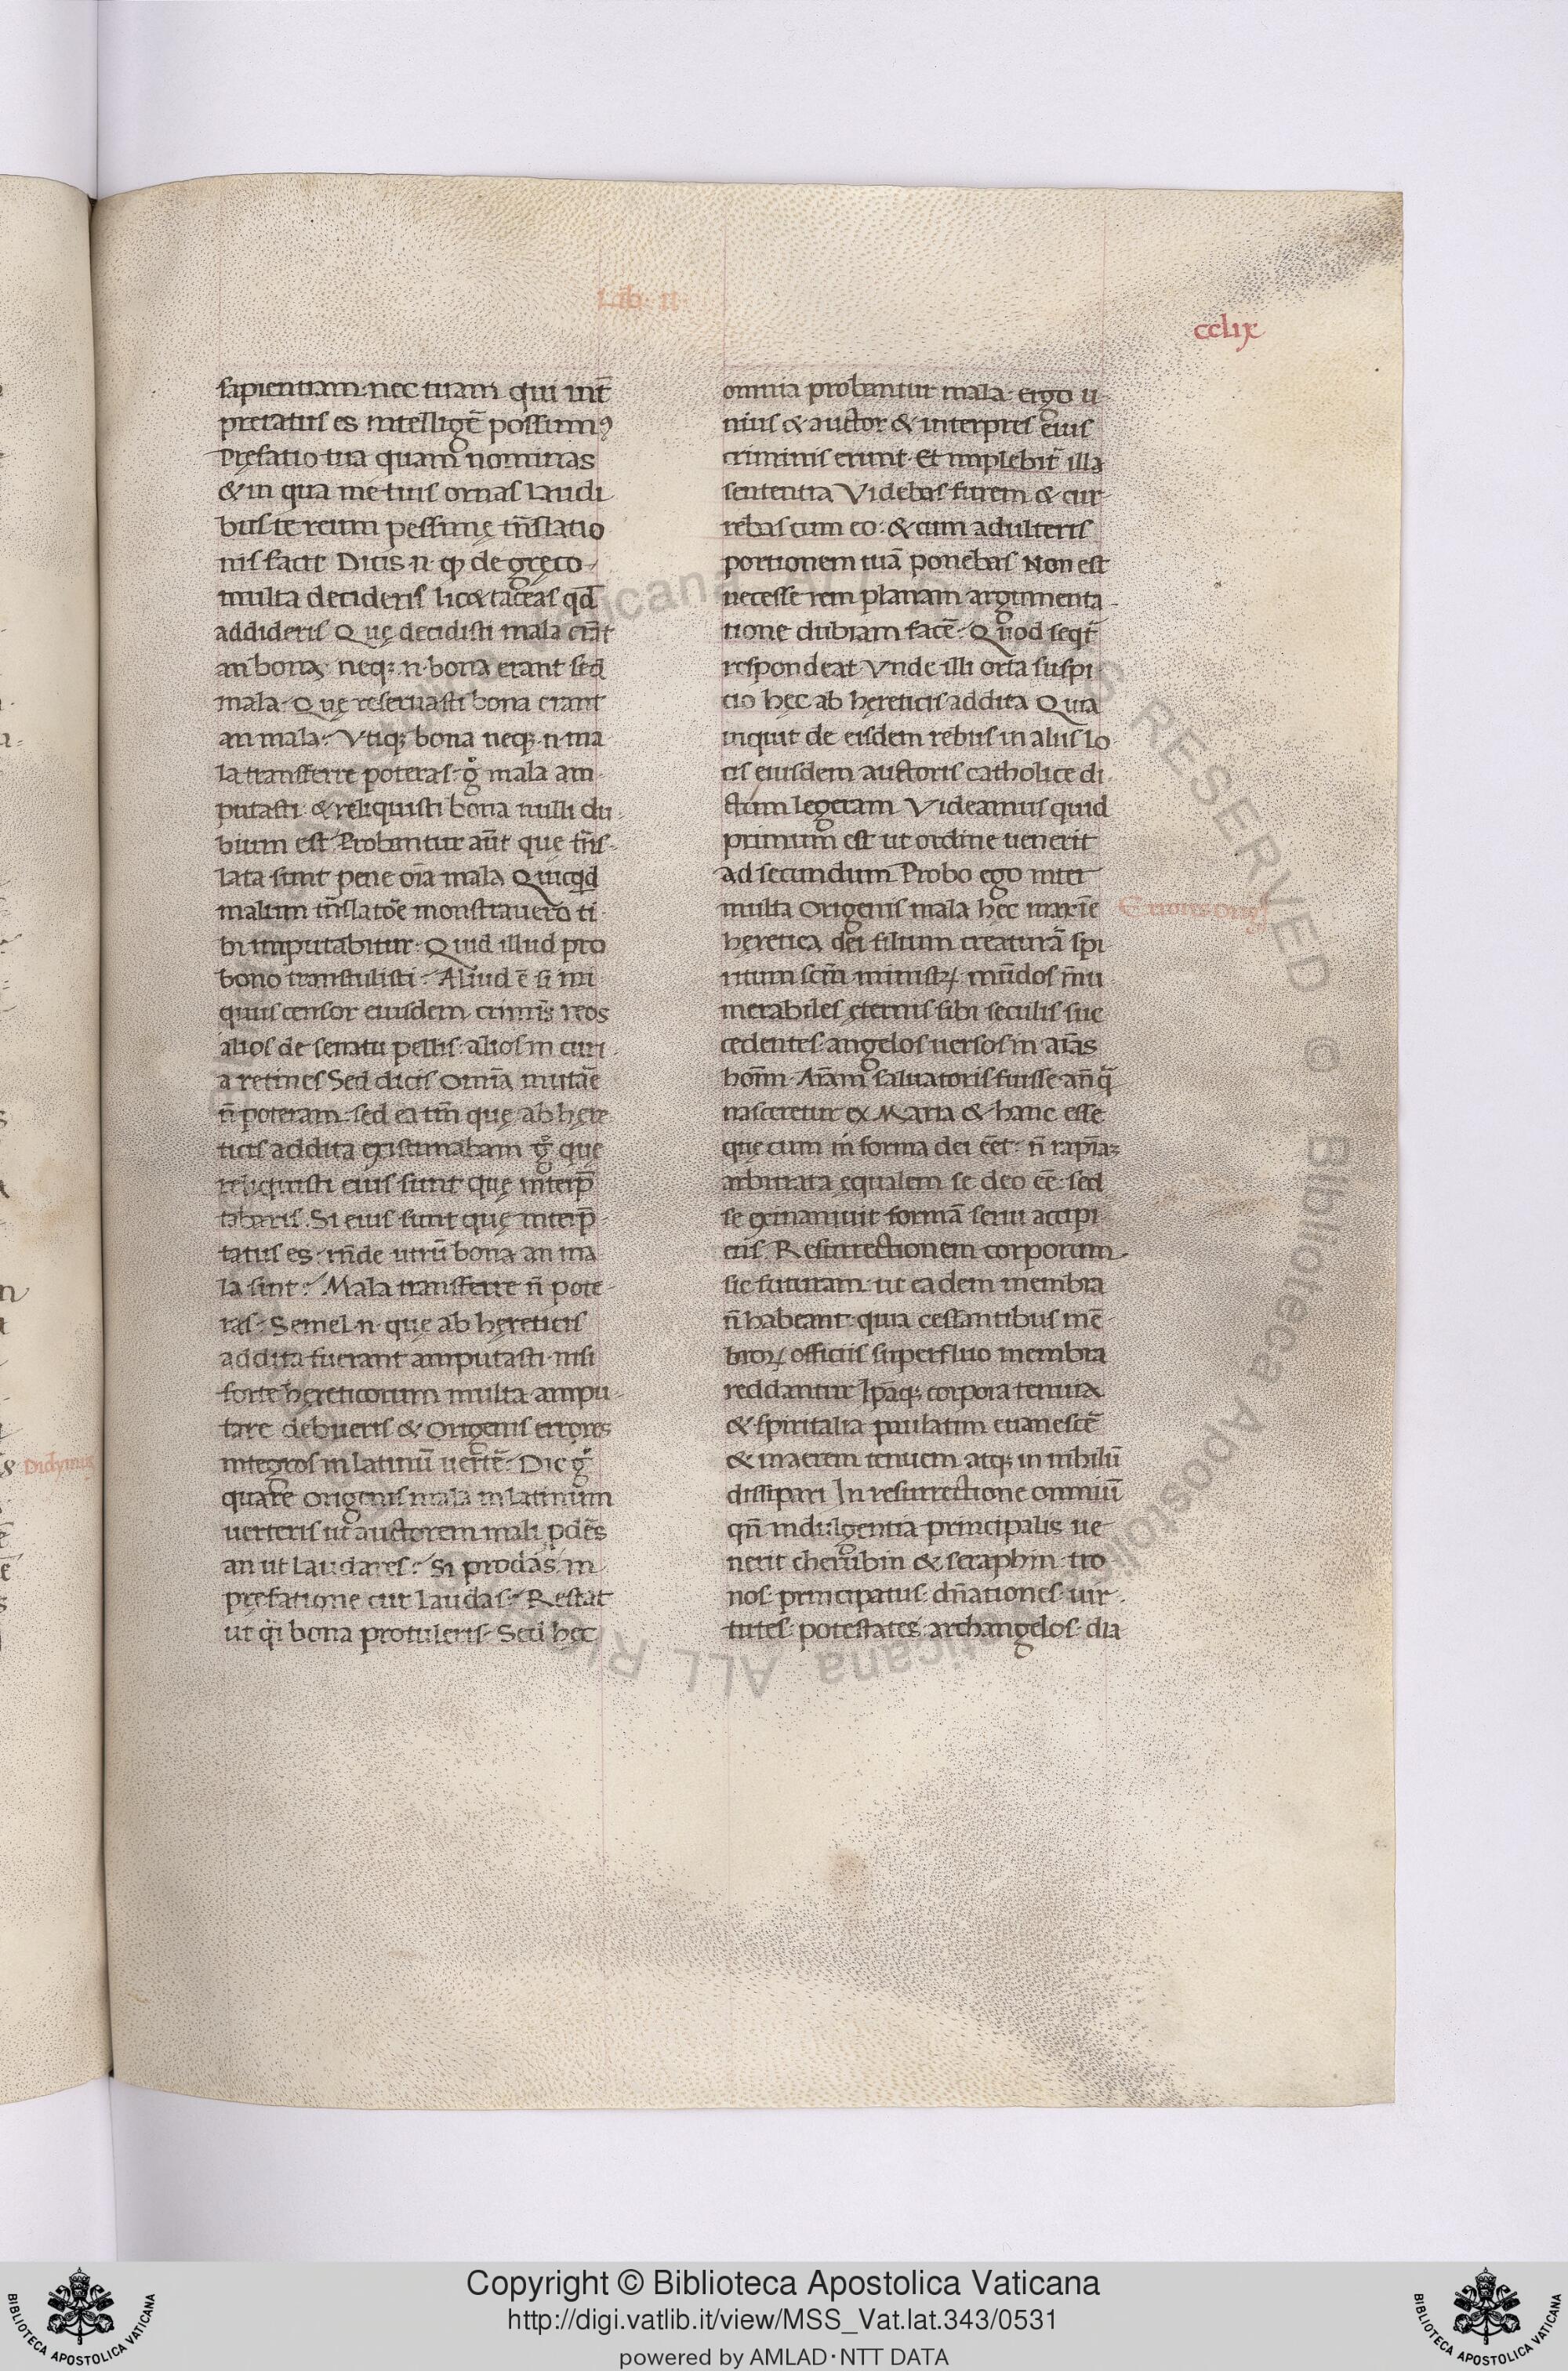 Lib. II
cclix
sapientiam. nec tuam qui int̄
pretatus es intelligē possumꝰ
Pręfatio tua quam nominas
& in qua me tuis ornas laudi
bus te reum pessimę trñslatio
nis facit Dicis .n. ꝙ de gręco
multa decideris lic& taceas qd̄
addideris Quę decidisti mala erāt
an bona neq; .n. bona erant sed
mala. Quę reseruasti bona erant
an mala. Vtiq; bona neq; .n. ma
la transferre poteras. g̊ mala am
putasti. & reliquisti bona nulli du
bium est Probantur aūt que trñs
lata sunt pene oīa mala Quicqd
malum trñslatōe monstrauero ti
bi imputabitur. Quid illud pro
bono transtulisti. Aliud ē si ini
quus censor eiusdem crimīs reos
alios de senatu pellis. alios in curi
a retines Sed dicis omīa mutāe
n̄ poteram. sed ea tm̄ quę ab here
ticis addita existimabam g̊ que
reliquisti eius sunt quę interp̄
tabaris. Si eius sunt quę interp̄
tatus es. rn̄de utrū bona an ma
la sint. Mala transferre n̄ pote
ras. Semel .n. que ab hęreticis
addita fuerant amputasti. nisi
forte hereticorum multa ampu
tare debueris & Origenis errores
integros in latinū uertē. Dic g̊
quare Origenis mala in latinum
uerteris ut auctorem mali p̱dēs
an ut laudares. Si prodas. in
pręfatione cur laudas. Restat
ut q̄i bona protuleris. Sed hęc
omnia probantur mala. ergo u
nius & auctor & interpres eius
criminis erunt. Et implebit̄ illa
sententia Videbas furem & cur
rebas cum eo. & cum adulteris
portionem tuā ponebas Non est
necesse rem planam argumenta
tione dubiam facē. Quod seqt̄
respondeat Vnde illi orta suspi
cio hęc ab hęreticis addita Quia
inquit de eisdem rebus in aliis lo
cis eiusdem auctoris catholice di
ctum legeram Videamus quid
primum est ut ordine uenerit
ad secundum Probo ego inter
multa Origenis mala hęc maxīe
Errores Orig
hęretica dei filium creaturā spi
ritum scm̄ ministrꝝ mūdos īnu
merabiles ęternis sibi seculis suc
cedentes angelos uersos in aīas
hoīm. Aīam saluatoris fuisse anq̄
nasceretur ex Maria & hanc esse
quę cum in forma dei eēt. n̄ rapīaꝫ
arbitrata equalem se deo eē. sed
se exinaniuit formā serui accipi
ens. Resurrectionem corporum
sic futuram. ut eadem membra
n̄ habeant. quia cessantibus mē
broꝝ officiis superfluo membra
reddantur Ipāq; corpora tenuia
& spiritalia paulatim euanescē
& in aerem tenuem atq; in nihilū
dissipari In resurrectione omniū
qn̄ indulgentia principalis ue
nerit cherubin & seraphin. tro
nos. principatus. dn̄ationes. uir
tutes. potestates. archangelos. dia
Didymus
Copyright © Biblioteca Apostolica Vaticana
http://digi.vatlib.it/view/MSS_Vat.lat.343/0531
powered by AMLAD·NTT DATA
BIBLIOTECA APOSTOLICA VATICANA
BIBLIOTECA APOSTOLICA VATICANA